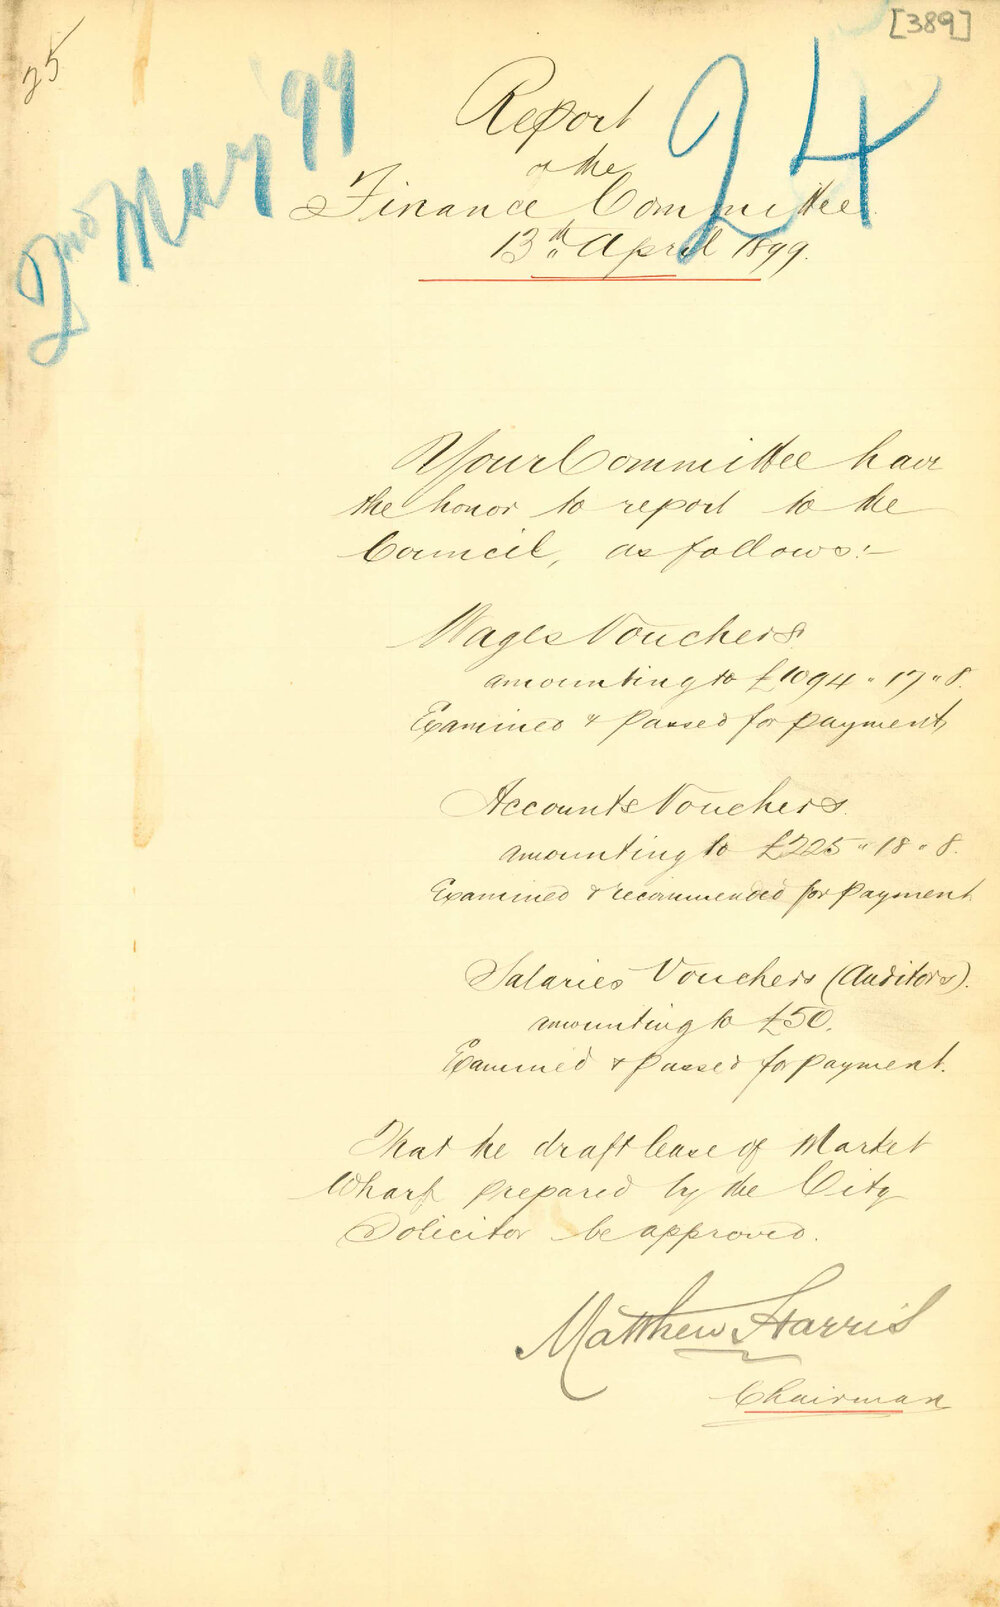 [389]
25
2nd May '99
24
Report
of the
Finance Committee
13th April 1899.
Your Committee have
the honor to report to the
Council, as follows:-
Wages Vouchers.
amounting to £1094 " 17 " 8.
Examined & Passed for payment,
Accounts Vouchers.
amounting to £225 " 18 " 8.
Examined & recommended for payment.
Salaries Vouchers (Auditors).
amounting to £50.
Examined & Passed for payment.
That the draft lease of Market
Wharf prepared by the City
Solicitor be approved.
Matthew Harris
Chairman